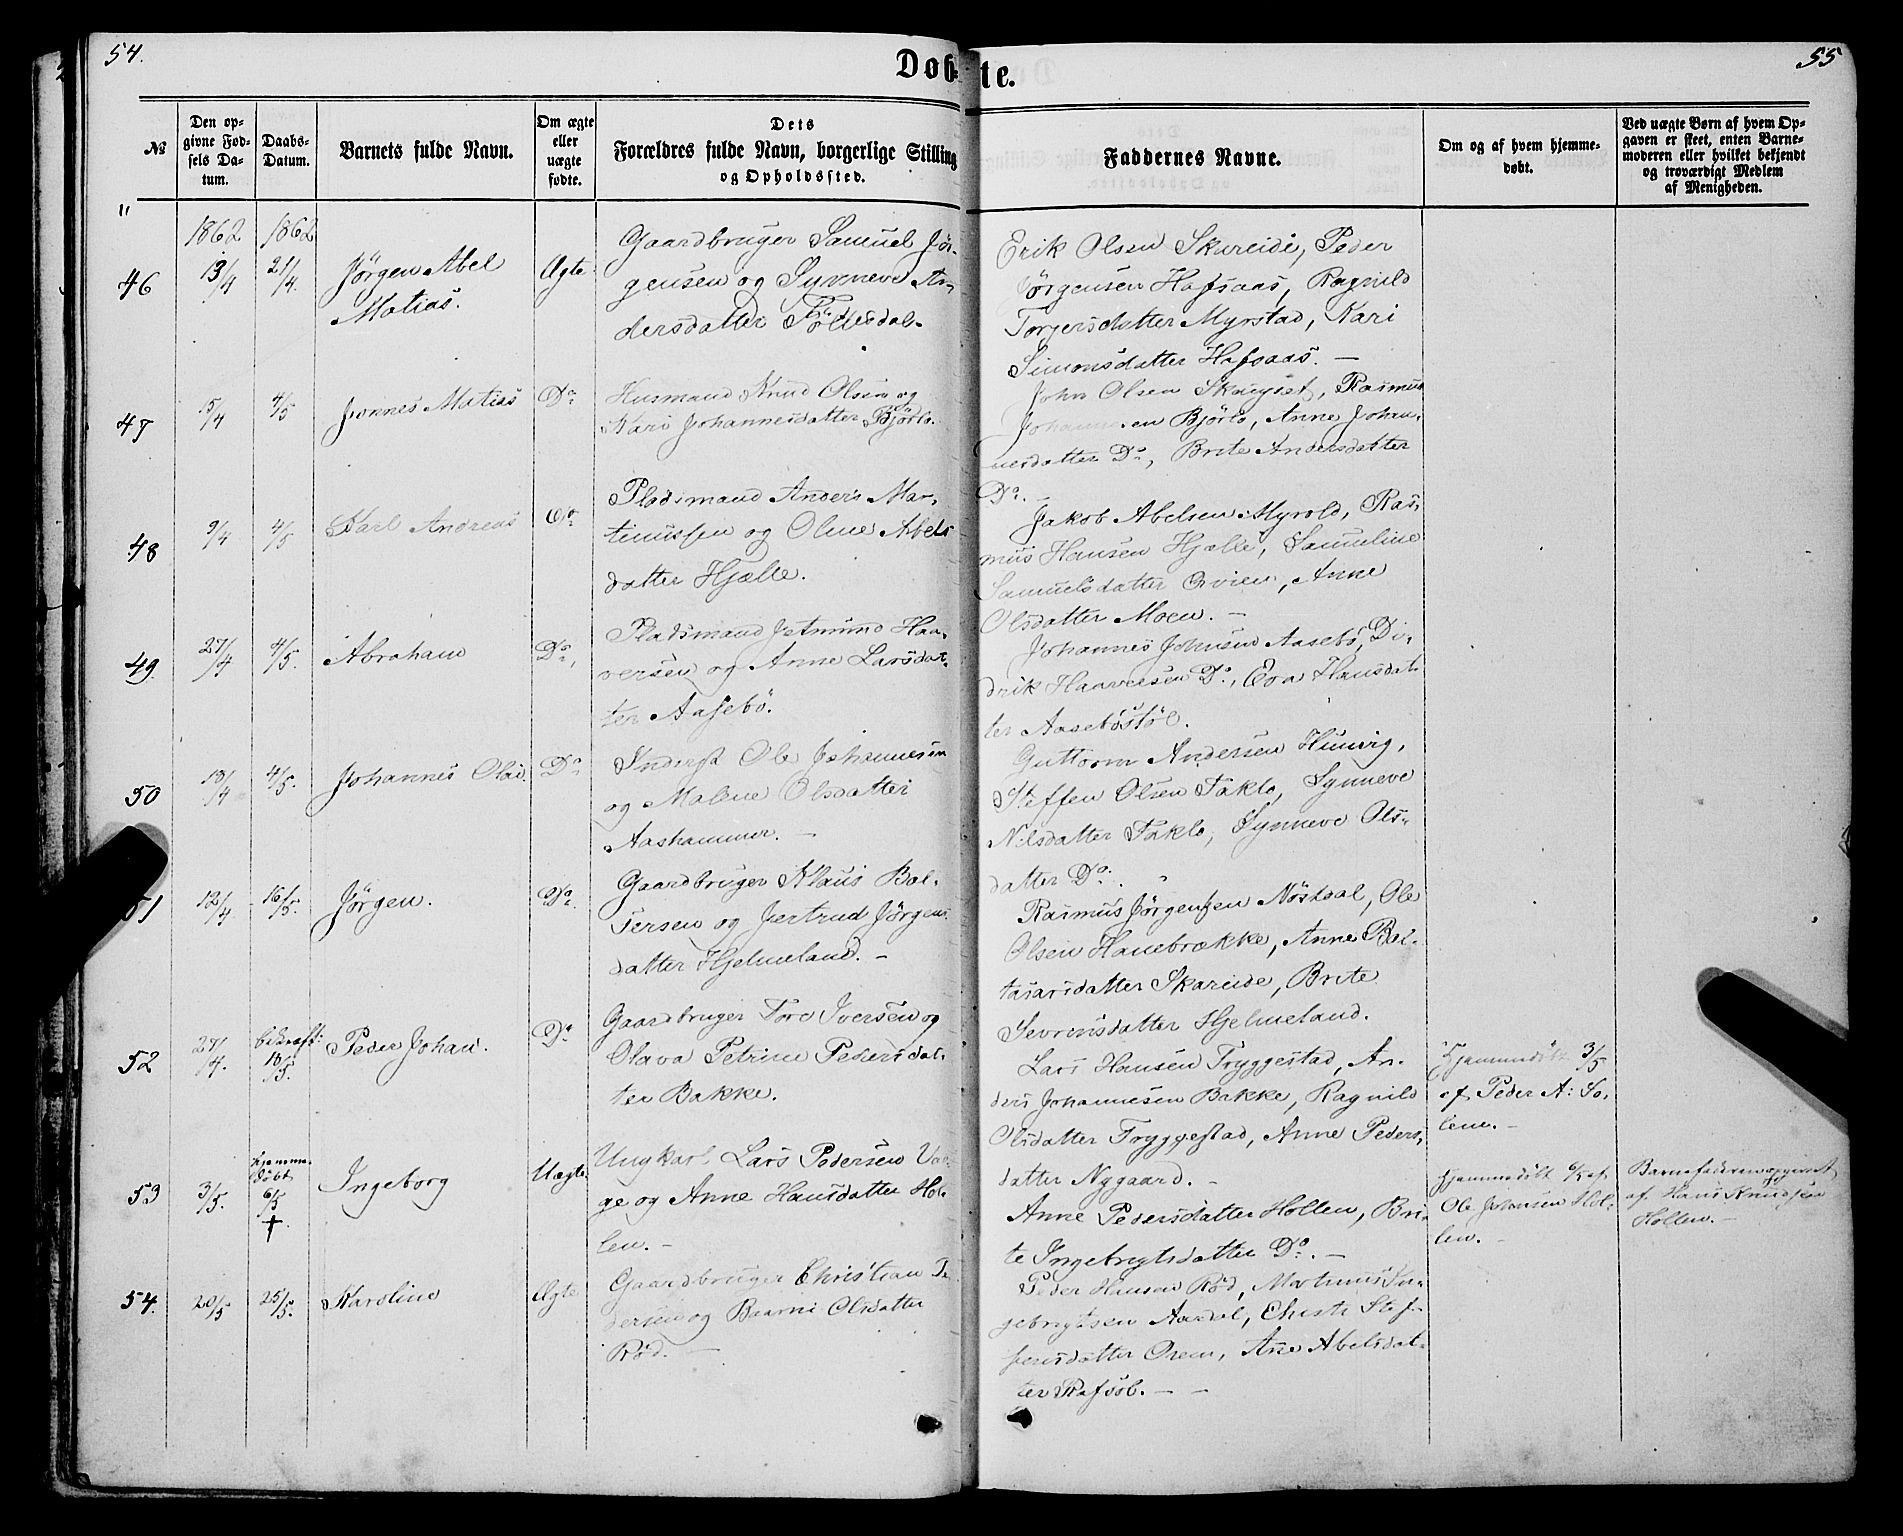 54.
55
Døbte.
№
Den op-
givne Fød-
sels Da-
tum.
Daabs-
Datum.
Barnets fulde Navn.
Om ægte
eller
uægte
fødte.
Dets
Forældres fulde Navn, borgerlige Stilling
og Opholdssted.
Faddernes Navne.
Om og af hvem hjemme-
døbt.
Ved uægte Børn af hvem Op-
gaven er skeet, enten Barne-
moderen eller hvilket bekjendt
og troværdigt Medlem
af Menigheden.
1862
1862
46
13/4
21/4.
Jørgen Abel
Matias.
Ægte
Gaardbruger Samuel Jør-
gensen og Synneve An-
dersdatter
Erik Olsen Skareide, Peder
Jørgensen Hafsaas, Ragnild
Torgersdatter Myrstad, Kari
Simonsdatter Hafsaas. —
47
15/4
4/5
Jonnes Matias
Do
Husmand Knud Olsen og
Kari Johannesdatter Bjørlo.
John Olsen Rasmus
Johannesen Bjørlo, Anne Johan-
nesdatter Do, Brite Andersdatter
Do. —
48
9/4
4/5
Karl Andreas
Do
Pladsmand Anders Mar-
tinussen og Oline Abels
datter Hjelle.
Jakob Abelsen Myrold, Ras-
mus Hansen Hjelle, Samueline
Samuelsdatter Anne
Olsdatter Moen. —
49
27/4
4/5.
Abraham
Do,
Pladsmand Haa-
versen og Anne Larsdat-
ter Aasebø.
Johannes Johnsen Aasebø, Di-
drik Haaversen Do, Eva Hansdat-
ter Aasebøstøl.
50
13/4
4/5.
Johannes Olai.
Do
Inderst Ole Johannesen
og Malene Olsdatter
Aashammer. —
Guttorm Andersen
Steffen Olsen Taklo, Synneve
Nilsdatter Taklo, Synneve Ols-
datter Do.
51
12/4
16/5.
Jørgen.
Do.
Gaardbruger Klaus Bal-
tersen og Jertrud Jørgens
datter Hjelmeland. —
Rasmus Jørgensen Nøstdal, Ole
Olsen Hanebrekke, Anne Bal-
tasarsdatter Skareide, Brite
Sevrinsdatter Hjelmeland.
52
27/4.
bekræft:
18/5.
Peder Johan.
Do
Gaardbruger Tore Iversen og
Olava Petrine Pedersdat-
ter Bakke.
Lars Hansen Tryggestad, An-
ders Johannesen Bakke, Ragnild
Olsdatter Tryggestad, Anne Peders-
datter Nygaard. —
Hjemmedøbt 3/5
af Peder A: So-
lem. —
53
3/5.
hjemme-
døbt
6/5
†
Ingeborg
Uægte
Ungkarl Lars Pedersen
ge og Anne Hansdatter Hol-
ten. —
Anne Pedersdatter Holten, Bri-
te Ingebrigtsdatter Do. —
Hjemmedøbt 6/5 af
Ole Johnsen Hol-
ten. —
Barnefaderen opgivet
af Hans Knudsen
Holten. —
54.
20/5
25/5.
Karoline
Ægte
Gaardbruger Christian Pe-
dersen og Olsdatter
Rød. —
Peder Hansen Rød, Martinus In-
gebrigtsen Aardal, Stef-
fensdatter Osen, Ane Abelsdat-
ter — —